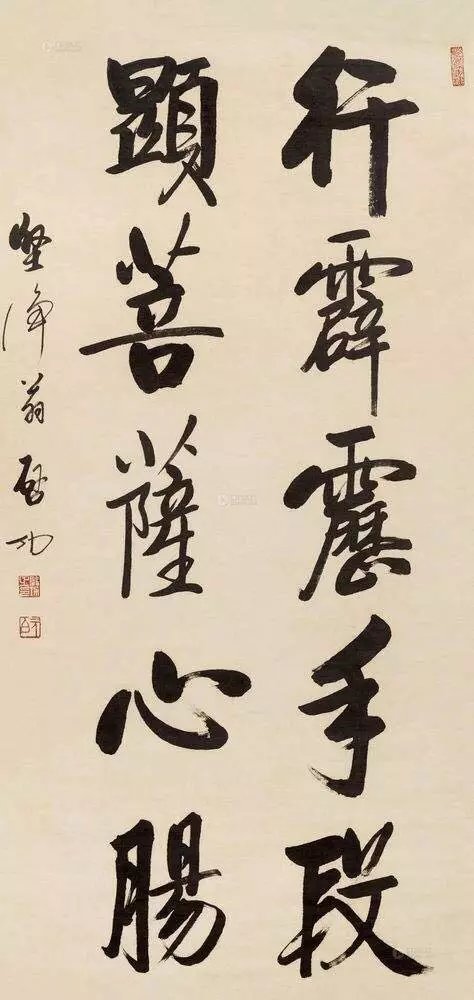 行霹靂手段
顯菩薩心腸
堅净翁啓功